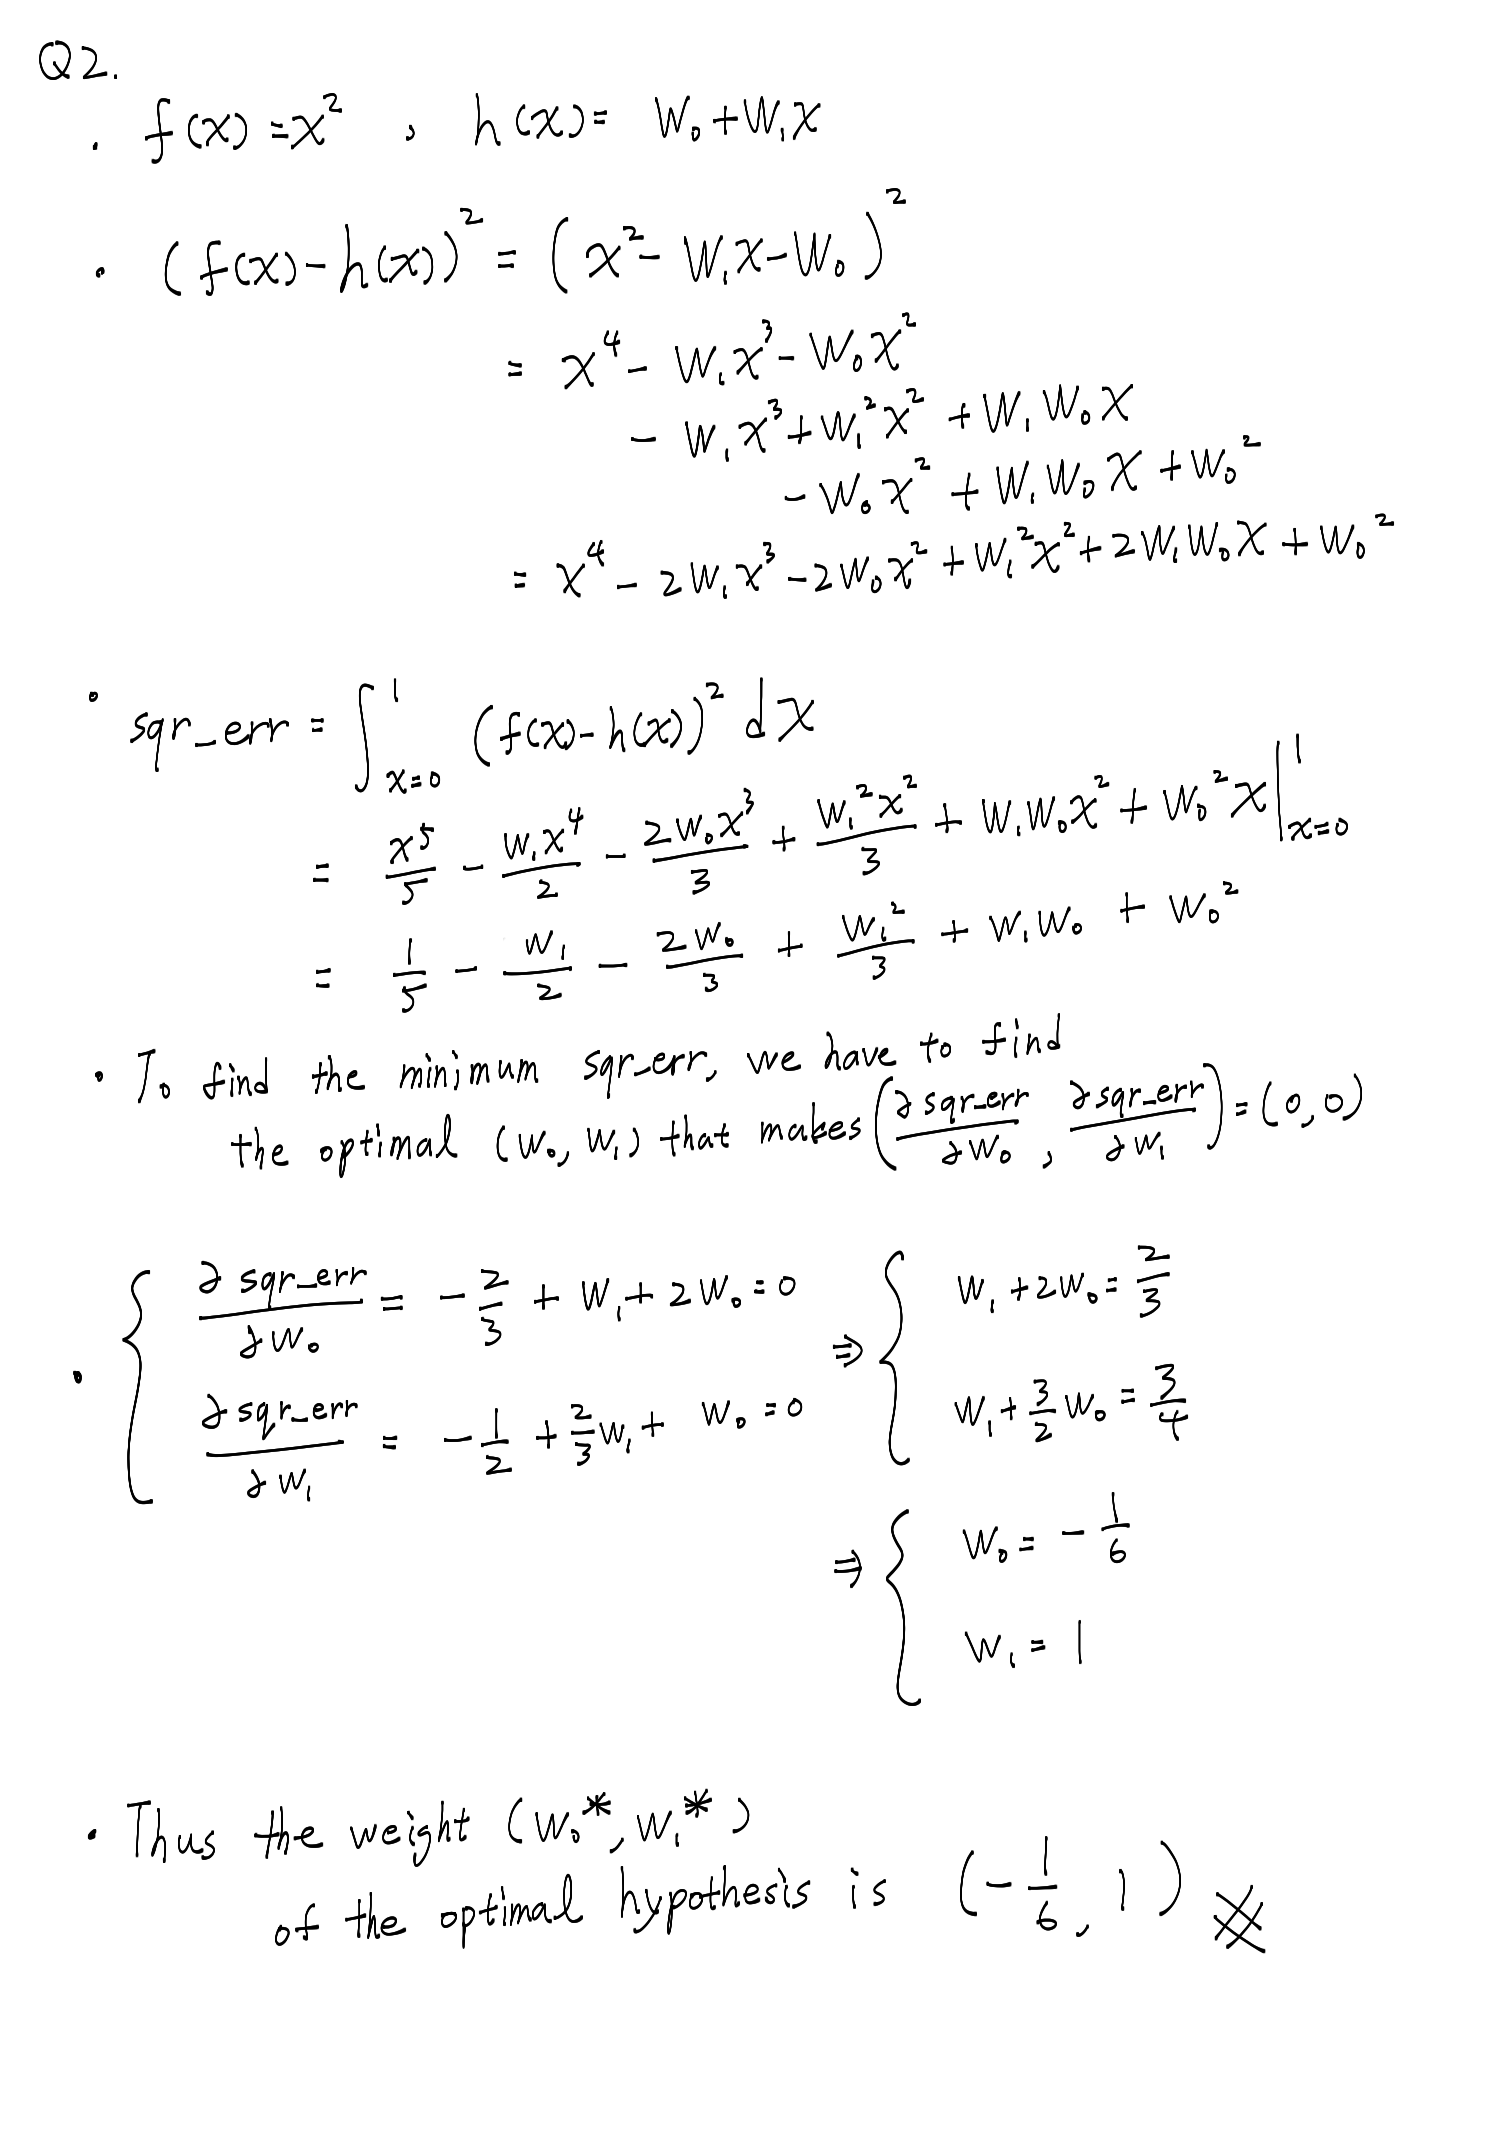 Q2.
· f(x) = x², h(x) = W₀ + W₁x
· (f(x) - h(x))² = (x² - W₁x - W₀)²
= x⁴ - W₁x³ - W₀x²
- W₁x³ + W₁²x² + W₁W₀x
- W₀x² + W₁W₀x + W₀²
= x⁴ - 2W₁x³ - 2W₀x² + W₁²x² + 2W₁W₀x + W₀²
· sqr_err = ∫_{x=0}^{1} (f(x) - h(x))² dx
= x⁵/5 - W₁x⁴/2 - 2W₀x³/3 + W₁²x²/3 + W₁W₀x² + W₀²x |_{x=0}^{1}
= 1/5 - W₁/2 - 2W₀/3 + W₁²/3 + W₁W₀ + W₀²
· To find the minimum sqr_err, we have to find
the optimal (W₀, W₁) that makes (∂sqr_err/∂W₀, ∂sqr_err/∂W₁) = (0,0)
· { ∂sqr_err/∂W₀ = -2/3 + W₁ + 2W₀ = 0 ⇒ { W₁ + 2W₀ = 2/3
∂sqr_err/∂W₁ = -1/2 + 2/3 W₁ + W₀ = 0 W₁ + 3/2 W₀ = 3/4
⇒ { W₀ = -1/6
W₁ = 1
· Thus the weight (W₀*, W₁*)
of the optimal hypothesis is (-1/6, 1)